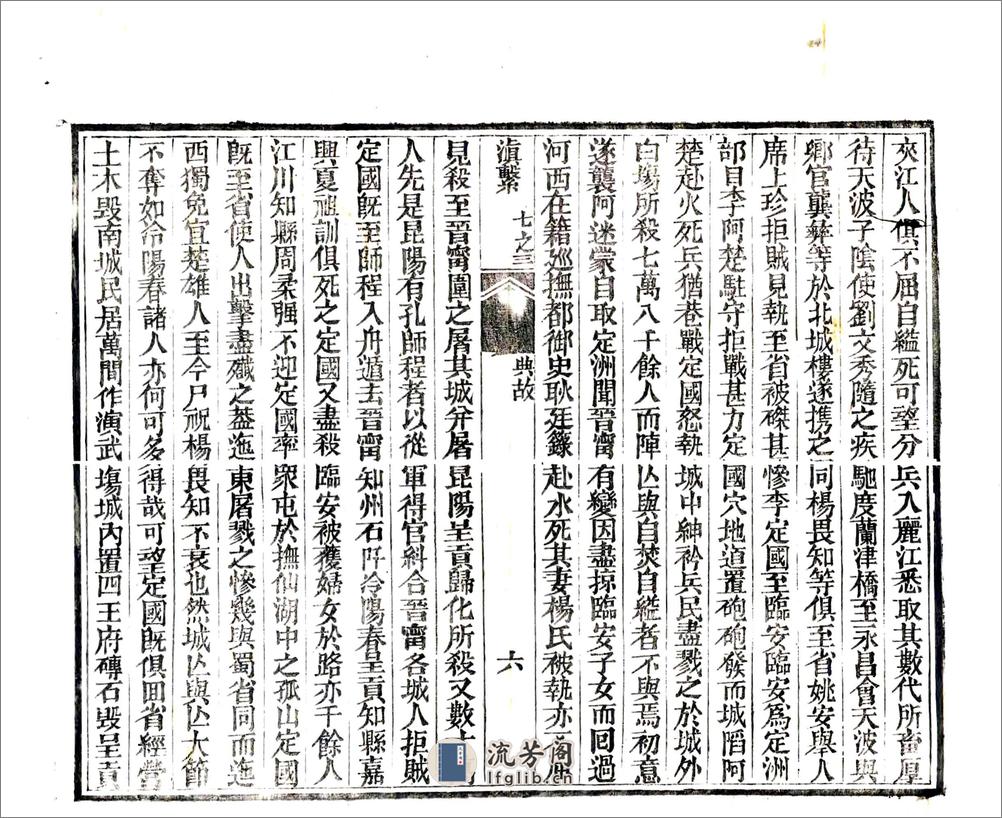 夾江人俱不屈自縊死可望分兵入麗江悉取其數代所畜厚
待天波子陰使劉文秀隨之疾馳度蘭津橋至永昌會天波與
鄉官龔彝等於北城樓遂携之同楊畏知等俱至省姚安舉人
席上珍拒賊見執至省被磔甚慘李定國至臨安臨安爲定洲
部目李阿楚駐守拒戰甚力定國穴地道置砲砲發而城陷阿
楚赴火死兵猶巷戰定國怒執城中紳衿兵民盡戮之於城外
白塲所殺七萬八千餘人而陣亾與自焚自縊者不與焉初意
遂襲阿迷蒙自取定洲聞晉甯有變因盡掠臨安子女而囘過
河西在籍巡撫都御史耿廷籙赴水死其妻楊氏被執亦
滇繫 七之三 典故 六
見殺至晉甯圍之屠其城并屠昆陽呈貢歸化所殺又數
人先是昆陽有孔師程者以從軍得官糾合晉甯各城人拒賊
定國既至師程入舟遁去晉甯知州石阡冷陽春呈貢知縣嘉
興夏祖訓俱死之定國又盡殺臨安被獲婦女於路亦千餘人
江川知縣周柔强不迎定國率衆屯於撫仙湖中之孤山定國
既至省使人出擊盡殲之葢迤東屠戮之慘幾與蜀省同而迤
西獨免宜楚雄人至今尸祝楊畏知不衰也然城亾與亾大節
不奪如冷陽春諸人亦何可多得哉可望定國既俱囬省經營
土木毁南城民居萬間作演武塲城內置四王府磚石毁呈貢
流芳阁
lfglib.com